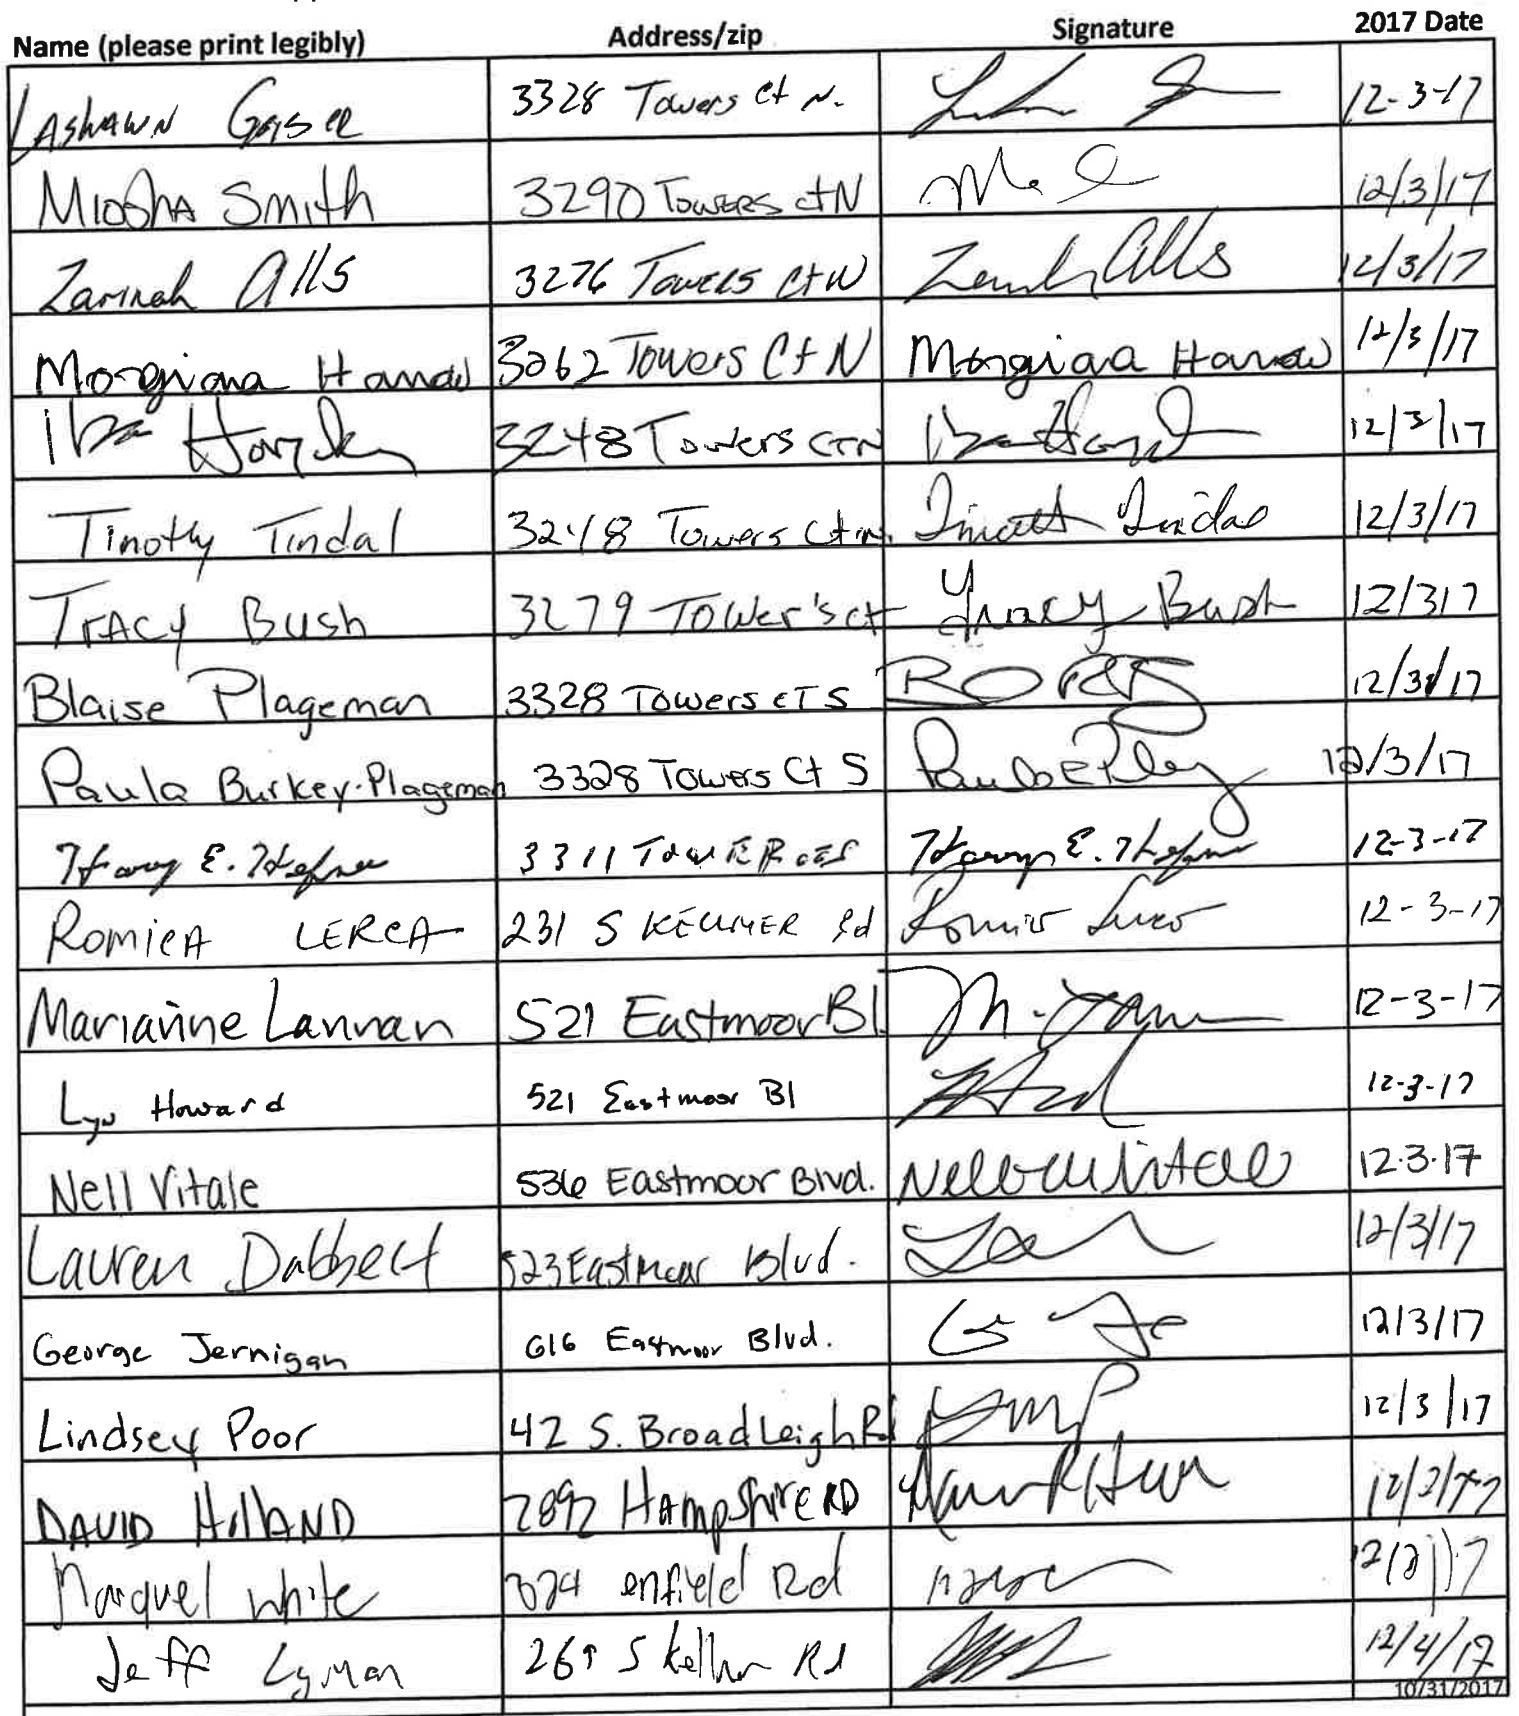 Name (please print legibly) Address/zip Signature 2017 Date
LAShAWN 3328 Towers Ct N. 12-3-17
MIOShA Smith 3290 TOWERS ctN 12/3/17
Zarinah Alls 3276 TOWERS CtN Alls 12/3/17
Morgiana 3262 Towers Ct N 12/3/17
3248 Towers CTN 12/3/17
Timothy Tindal 3248 Towers Ct N. 12/3/17
TRACY Bush 3279 TOWer's ct Tracy Bush 12/317
Blaise Plageman 3328 Towers CT S 12/3/17
Paula Burkey-Plageman 3328 Towers Ct S 12/3/17
Harry E. 3311 TOWER CT S Harry E. 12-3-17
ROMICA LERCA 231 S KELLNER Rd 12-3-17
Marianne Lannan 521 Eastmoor Bl. 12-3-17
Lyn Howard 521 Eastmoor Bl 12-3-17
Nell Vitale 536 Eastmoor Blvd. 12.3.17
Lauren Dabbert 523 Eastmoor Blvd. 12/3/17
George Jernigan 616 Eastmoor Blvd. 12/3/17
Lindsey Poor 42 S. BroadLeigh Rd 12/3/17
DAVID HollAND 2892 HAmpShirE RD
Marquel white 324 enfield Rd
Jeff Lyman S Kellner Rd 12/4/17
10/31/2017